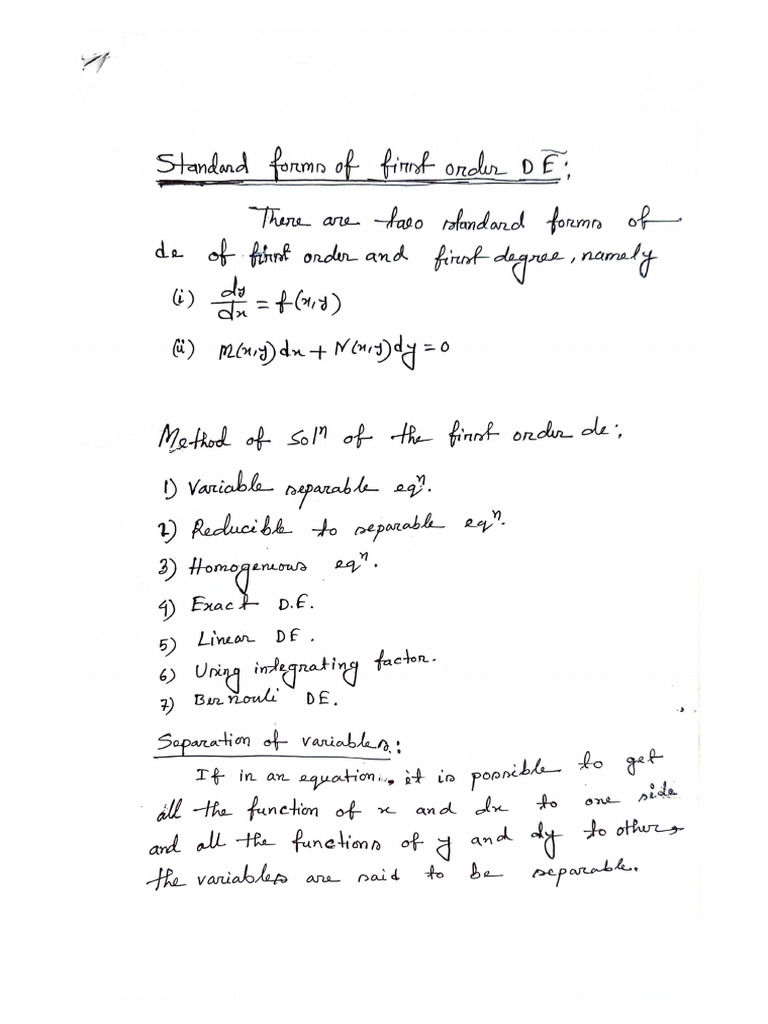 Standard forms of first order DE:
There are two standard forms of
de of first order and first degree, namely
(i) dy/dx = f(x,y)
(ii) M(x,y)dx + N(x,y)dy = 0
Method of solⁿ of the first order de:
1) Variable separable eqⁿ.
2) Reducible to separable eqⁿ.
3) Homogeneous eqⁿ.
4) Exact D.E.
5) Linear DE.
6) Using integrating factor.
7) Bernouli DE.
Separation of variables:
If in an equation, it is possible to get
all the function of x and dx to one side
and all the functions of y and dy to other,
the variables are said to be separable.